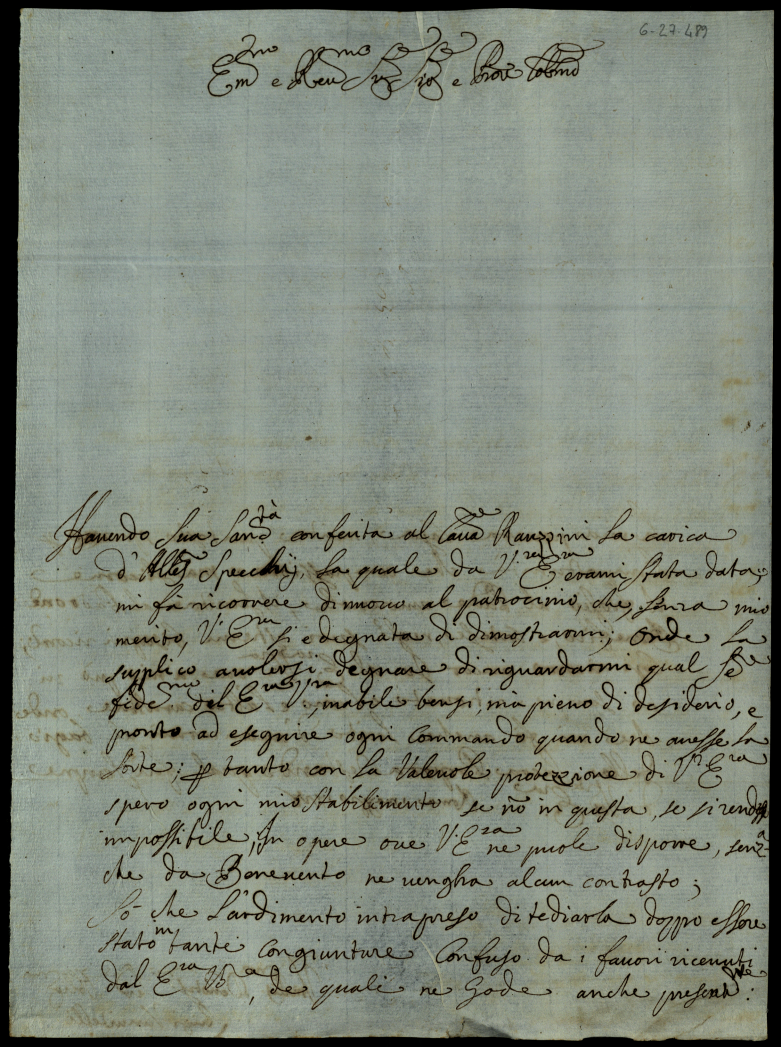 6-27.489
Em.mo e Reu.mo Sig.re Sig.re e Pron.e Colmo
Hauendo Sua San.tà conferita al Cau.re Rauzzini la carica
d'Aless.o Specchij, la quale da V.ra E.za erami stata data,
mi fà ricorrere di nuouo al patrocinio, che, senza mio
merito, V. E.za si e degnata di dimostrarmi; Onde La
supplico auolersi degnare di riguardarmi qual se.re
fide.mo del E.za V.ra, inabile bensi, mà pieno di desiderio, e
pronto ad eseguire ogni Commando quando ne auesse la
sorte; p tanto con La Valeuole protezzione di V. E.za
spero ogni mio stabilimento se nõ in questa, se si rende
impossibile, In opere oue V. E.za ne puole disporre, senza
che da Beneuento ne uengha alcun contrasto;
Sò che L'ardimento intrapreso di tediarla doppo essere
stato in tante congiunture Confuso da i fauori riceuuti
dal E.za V.ra, de quali ne Gode anche presente: